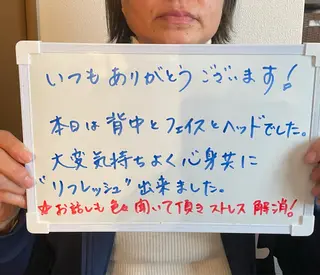 いつもありがとうございます!
本日は背中とフェイスとヘッドでした。
大変気持ちよく心身共に
"リフレッシュ"出来ました。
☆お話しも色々聞いて頂きストレス解消!